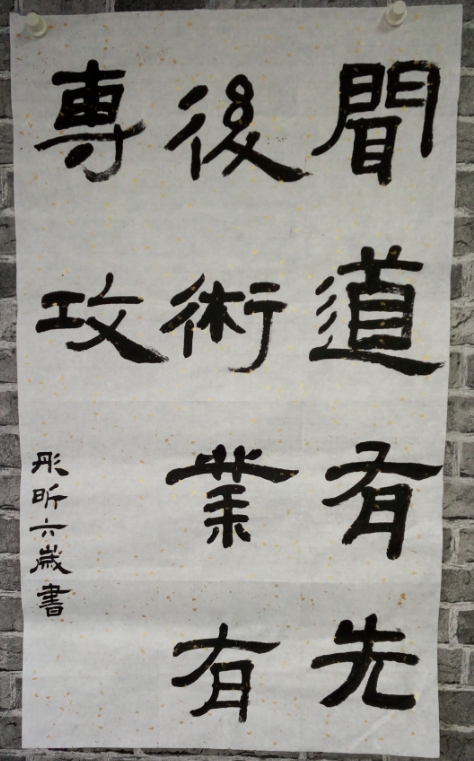 聞道有先
後術業有
專攻
彤昕六歲書